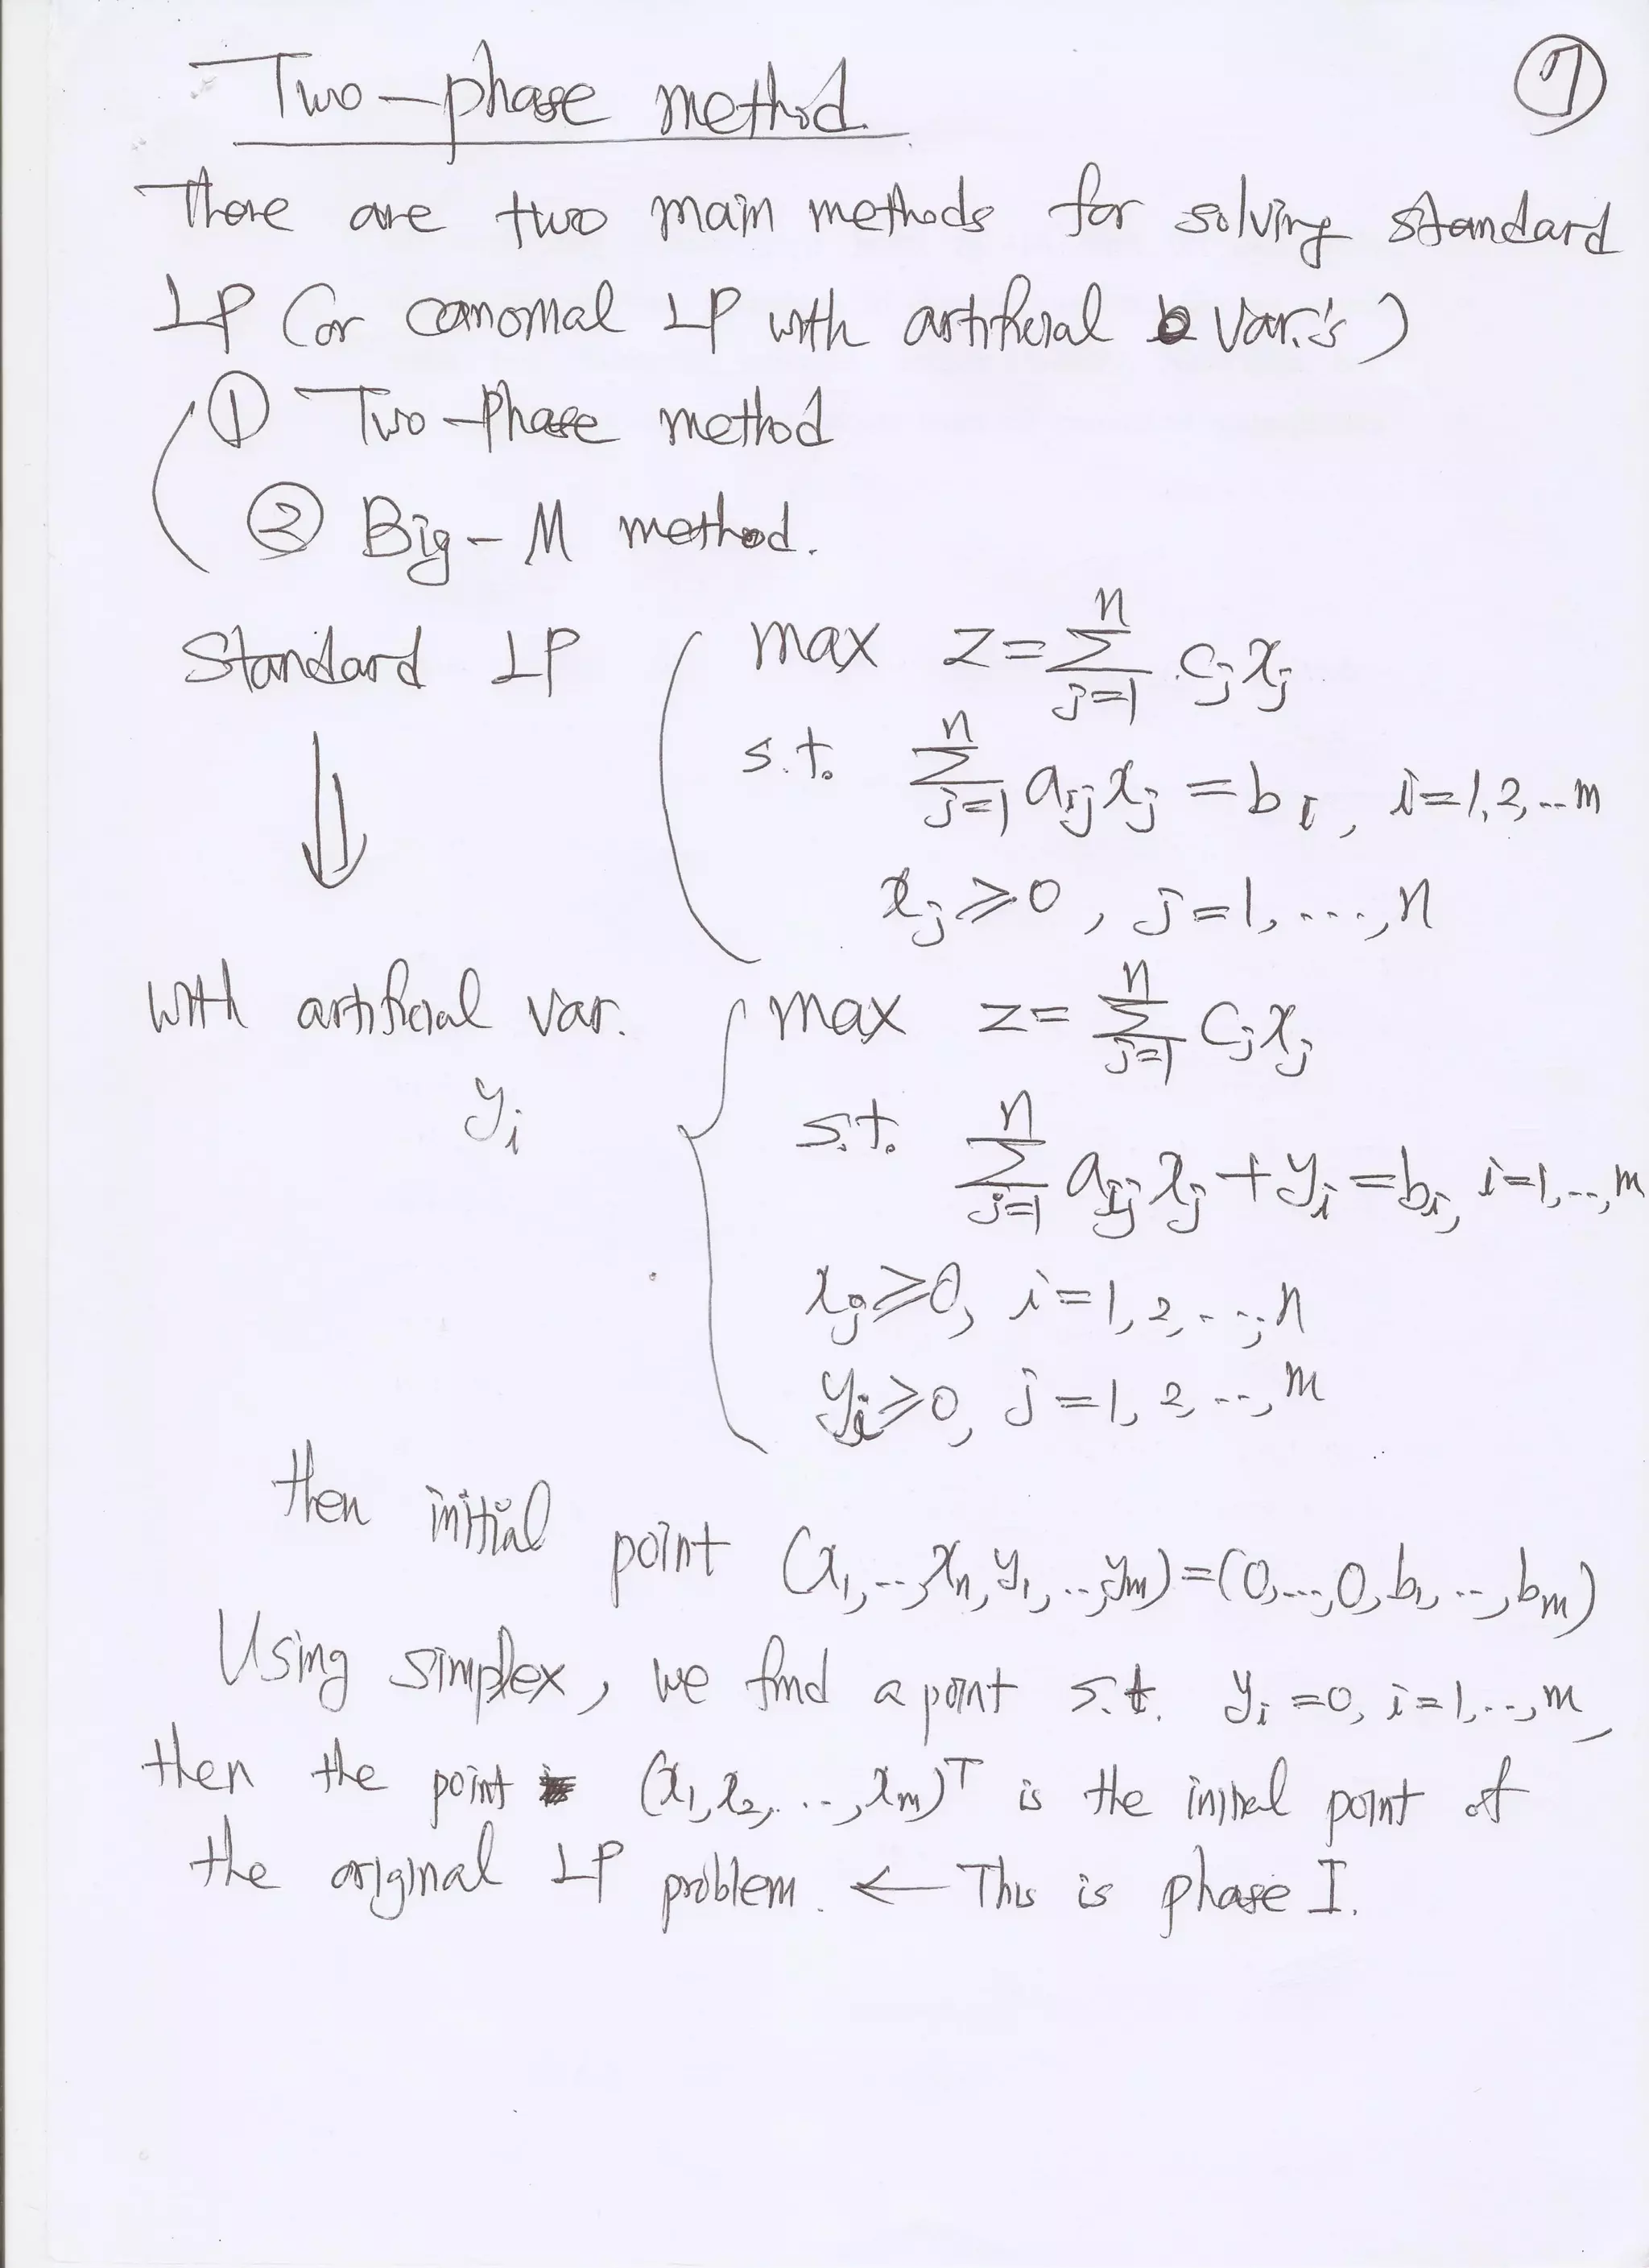 Two-phase method.
⑦
There are two main methods for solving standard
LP (or canonical LP with artificial var.'s)
① Two-Phase method
② Big-M method.
Standard LP
max z = \sum_{j=1}^{n} c_j x_j
s.t. \sum_{j=1}^{n} a_{ij} x_j = b_i, i=1,2,..m
x_j ≥ 0, j=1,...,n
with artificial var.
y_i
max z = \sum_{j=1}^{n} c_j x_j
s.t. \sum_{j=1}^{n} a_{ij} x_j + y_i = b_i, i=1,..,m
x_j ≥ 0, i=1,2,...,n
y_i ≥ 0, j=1,2,..,m
then initial point (x_1,..,x_n,y_1,..,y_m)=(0,...,0,b_1,..,b_m)
Using simplex, we find a point s.t. y_i=0, i=1,..,m,
then the point (x_1,x_2,...,x_m)^T is the initial point of
the original LP problem. ← This is phase I.